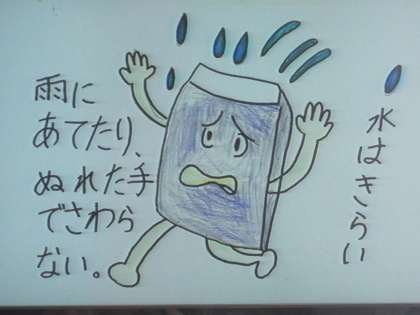 水はきらい
雨に
あてたり、
ぬれた手
でさわら
ない。